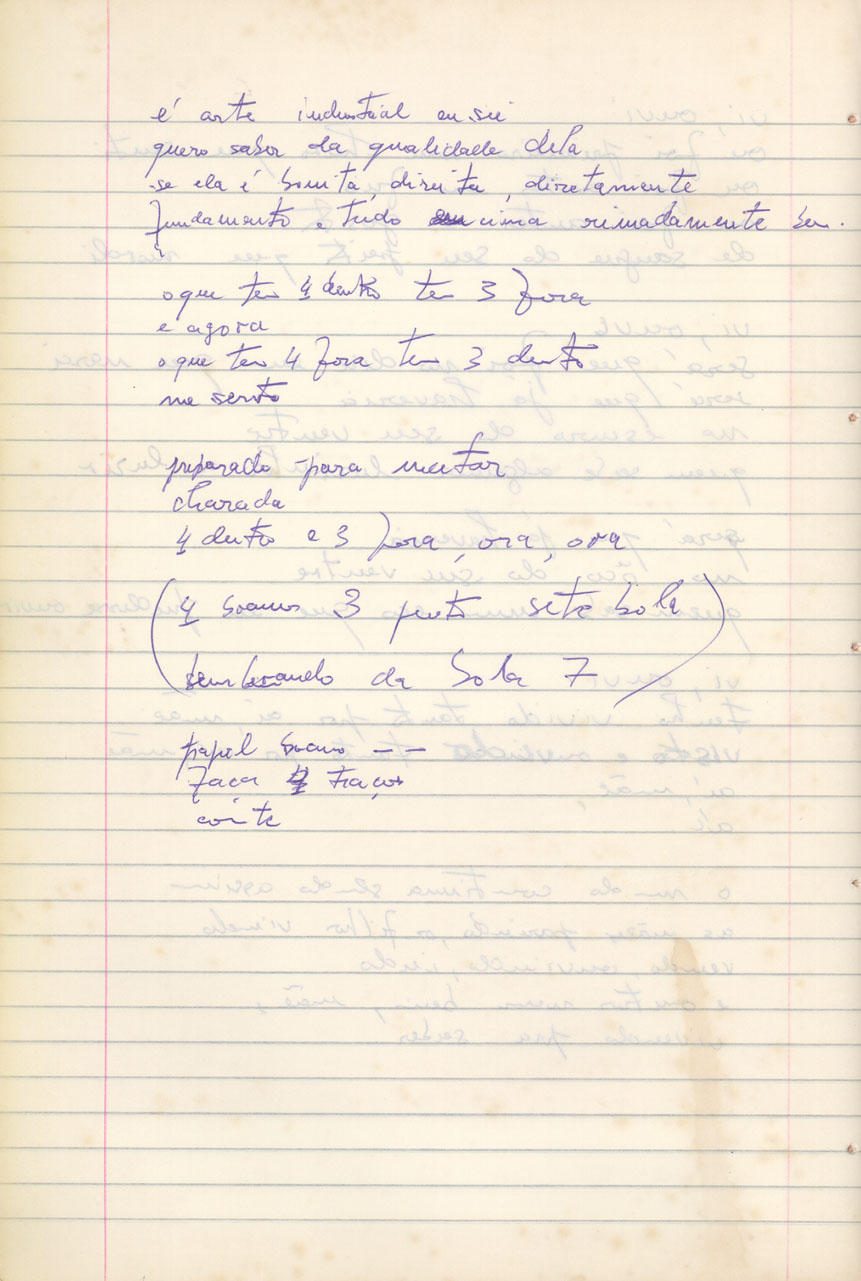 é arte industrial em si
quero saber da qualidade dela
se ela é bonita, direita, diretamente
fundamento e tudo em cima rimadamente bem.
o que tem 4 dentro tem 3 fora
e agora
o que tem 4 fora tem 3 dentro
me sento
preparado para matar
charada
4 dentro e 3 fora, ora, ora
(4 branco 3 preto sete bola
lembrando da bola 7)
papel branco — —
faca 4 traços
corte